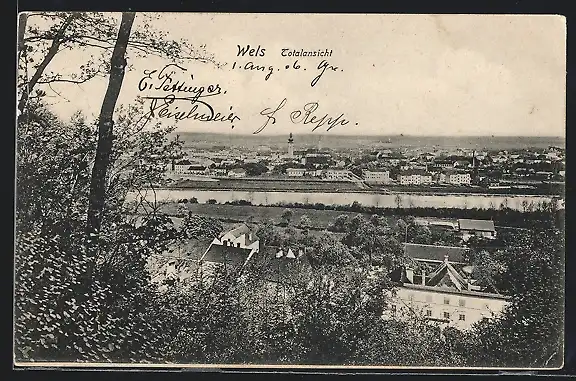 Wels Totalansicht
1. Aug. 06. Gr.
E. Pettinger.
Fr. Repp.